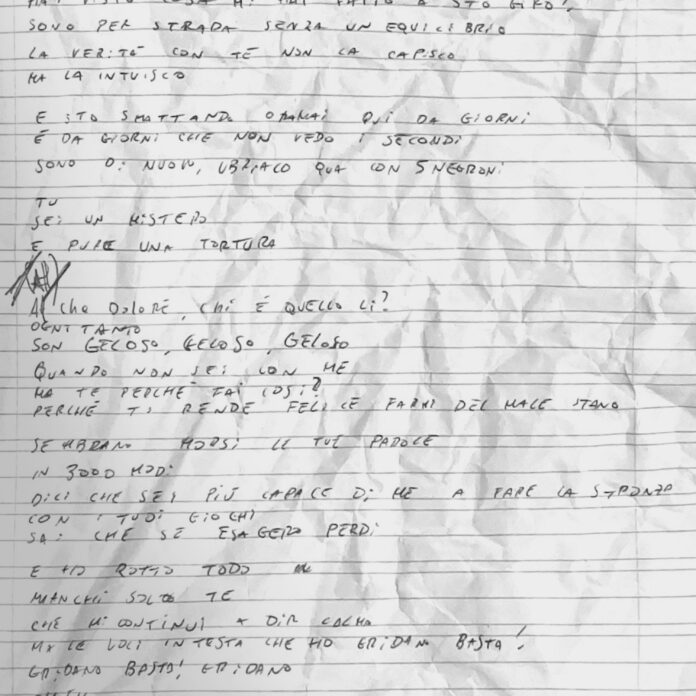 HAI VISTO COSA MI HAI FATTO A STO GIRO!
SONO PER STRADA SENZA UN EQUILIBRIO
LA VERITÀ CON TE NON LA CAPISCO
MA LA INTUISCO
E STO SMATTANDO ORMAI QUI DA GIORNI
È DA GIORNI CHE NON VEDO I SECONDI
SONO DI NUOVO, UBRIACO QUA CON 5 NEGRONI
TU
SEI UN MISTERO
E PURE UNA TORTURA
Che DOLORE, CHI È QUELLO LI?
OGNI TANTO
SON GELOSO, GELOSO, GELOSO
QUANDO NON SEI CON ME
MA TE PERCHÉ FAI COSÌ?
PERCHÉ TI RENDE FELICE FARMI DEL MALE STANO
SEMBRANO MORSI LE TUE PAROLE
IN 3000 MODI
DICI CHE SEI PIÙ CAPACE DI ME A FARE LA STRONZA
CON I TUOI GIOCHI
SAI CHE SE ESAGERO PERDI
E HO ROTTO TODO
MANCHI SOLO TE
CHE MI CONTINUI A DIR CALMA
MA LE VOCI IN TESTA CHE HO GRIDANO BASTA!
GRIDANO BASTA! GRIDANO